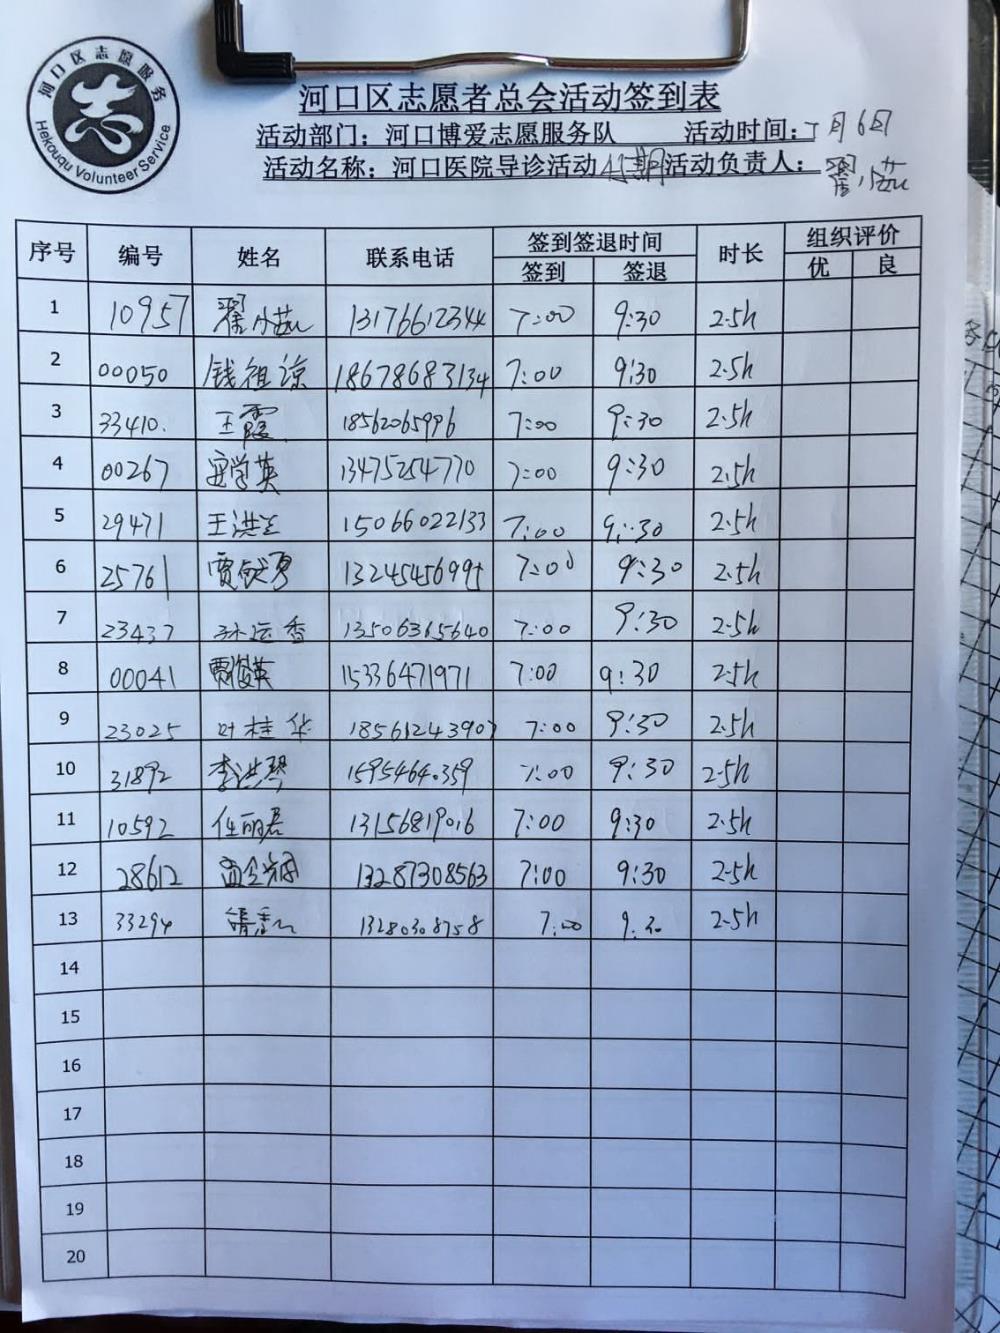 河口区志愿服务
Hekouqu Volunteer Service
河口区志愿者总会活动签到表
活动部门：河口博爱志愿服务队 活动时间：7月6日
活动名称：河口医院导诊活动 期 活动负责人：
序号 编号 姓名 联系电话 签到签退时间 时长 组织评价
签到 签退 优 良
1 10957 13176612344 7:00 9:30 2.5h
2 00050 钱祖谅 18678683134 7:00 9:30 2.5h
3 33410. 王霞 18562065996 7:00 9:30 2.5h
4 00267 13475254770 7:00 9:30 2.5h
5 29471 王洪兰 15066022133 7:00 9:30 2.5h
6 25761 13245456995 7:00 9:30 2.5h
7 23437 孙运香 13506365640 7:00 9:30 2.5h
8 00041 贾俊英 15336471971 7:00 9:30 2.5h
9 23025 叶桂华 18561243907 7:00 9:30 2.5h
10 31892 李洪琴 1595464.359 7:00 9:30 2.5h
11 10592 任丽君 13156819016 7:00 9:30 2.5h
12 28612 13287308563 7:00 9:30 2.5h
13 33294 13280308758 7:00 9:30 2.5h
14
15
16
17
18
19
20